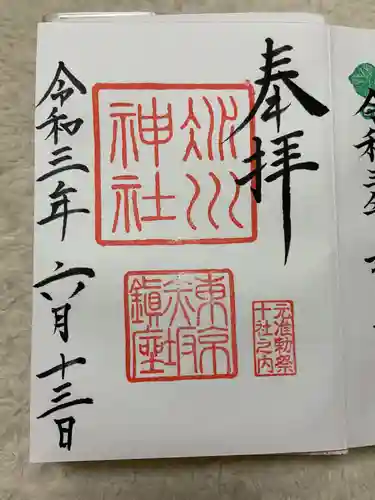 奉拝
氷川
神社
元准勅祭
十社之内
東京
赤坂
鎮座
令和三年六月十三日
令和三年